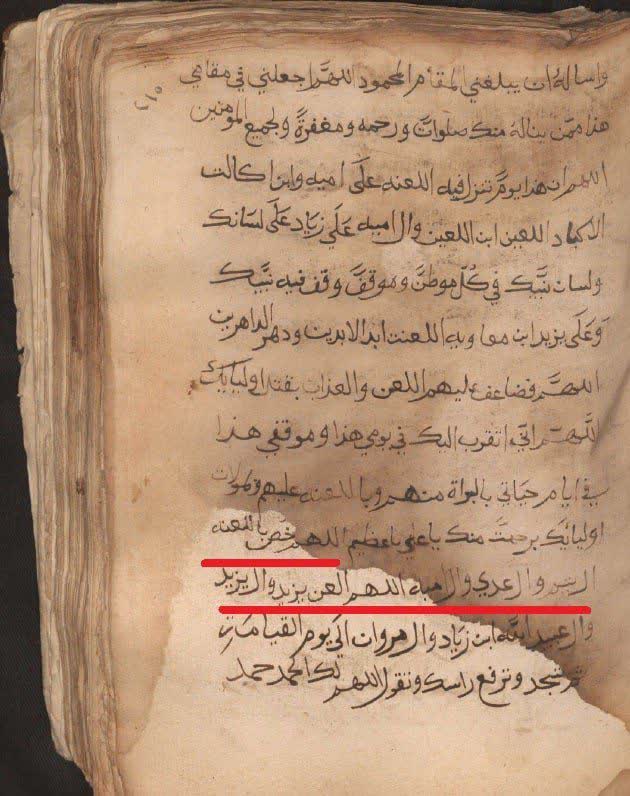 واساله ان يبلغني المقام المحمود اللهم اجعلني في مقامي
هذا ممن يناله منك صلوات ورحمه ومغفرة ولجميع المومنين
اللهم ان هذا يوم تنزل فيه اللعنه على اميه وابن اكالت
الاكباد اللعين ابن اللعين وال اميه على زياد على لسانك
ولسان نبيك في كل موطن وموقف وقف فيه نبيك
وعلى يزيد ابن معاويه اللعنت ابد الابدين ودهر الداهرين
اللهم فضاعف عليهم اللعن والعذاب بقتل اوليايك
اللهم اني اتقرب اليك في يومي هذا وموقفي هذا
في ايام حياتي بالبراة منهم وباللعنه عليهم
اوليائك برحمت منك يا علي يا عظيم اللهم خص باللعنه
ال وال عدي وال اميه اللهم العن يزيد وال يزيد
وال عبيد الله ابن زياد وال مروان الى يوم القيامة
ثم تسجد وترفع راسك وتقول اللهم لك الحمد حمد